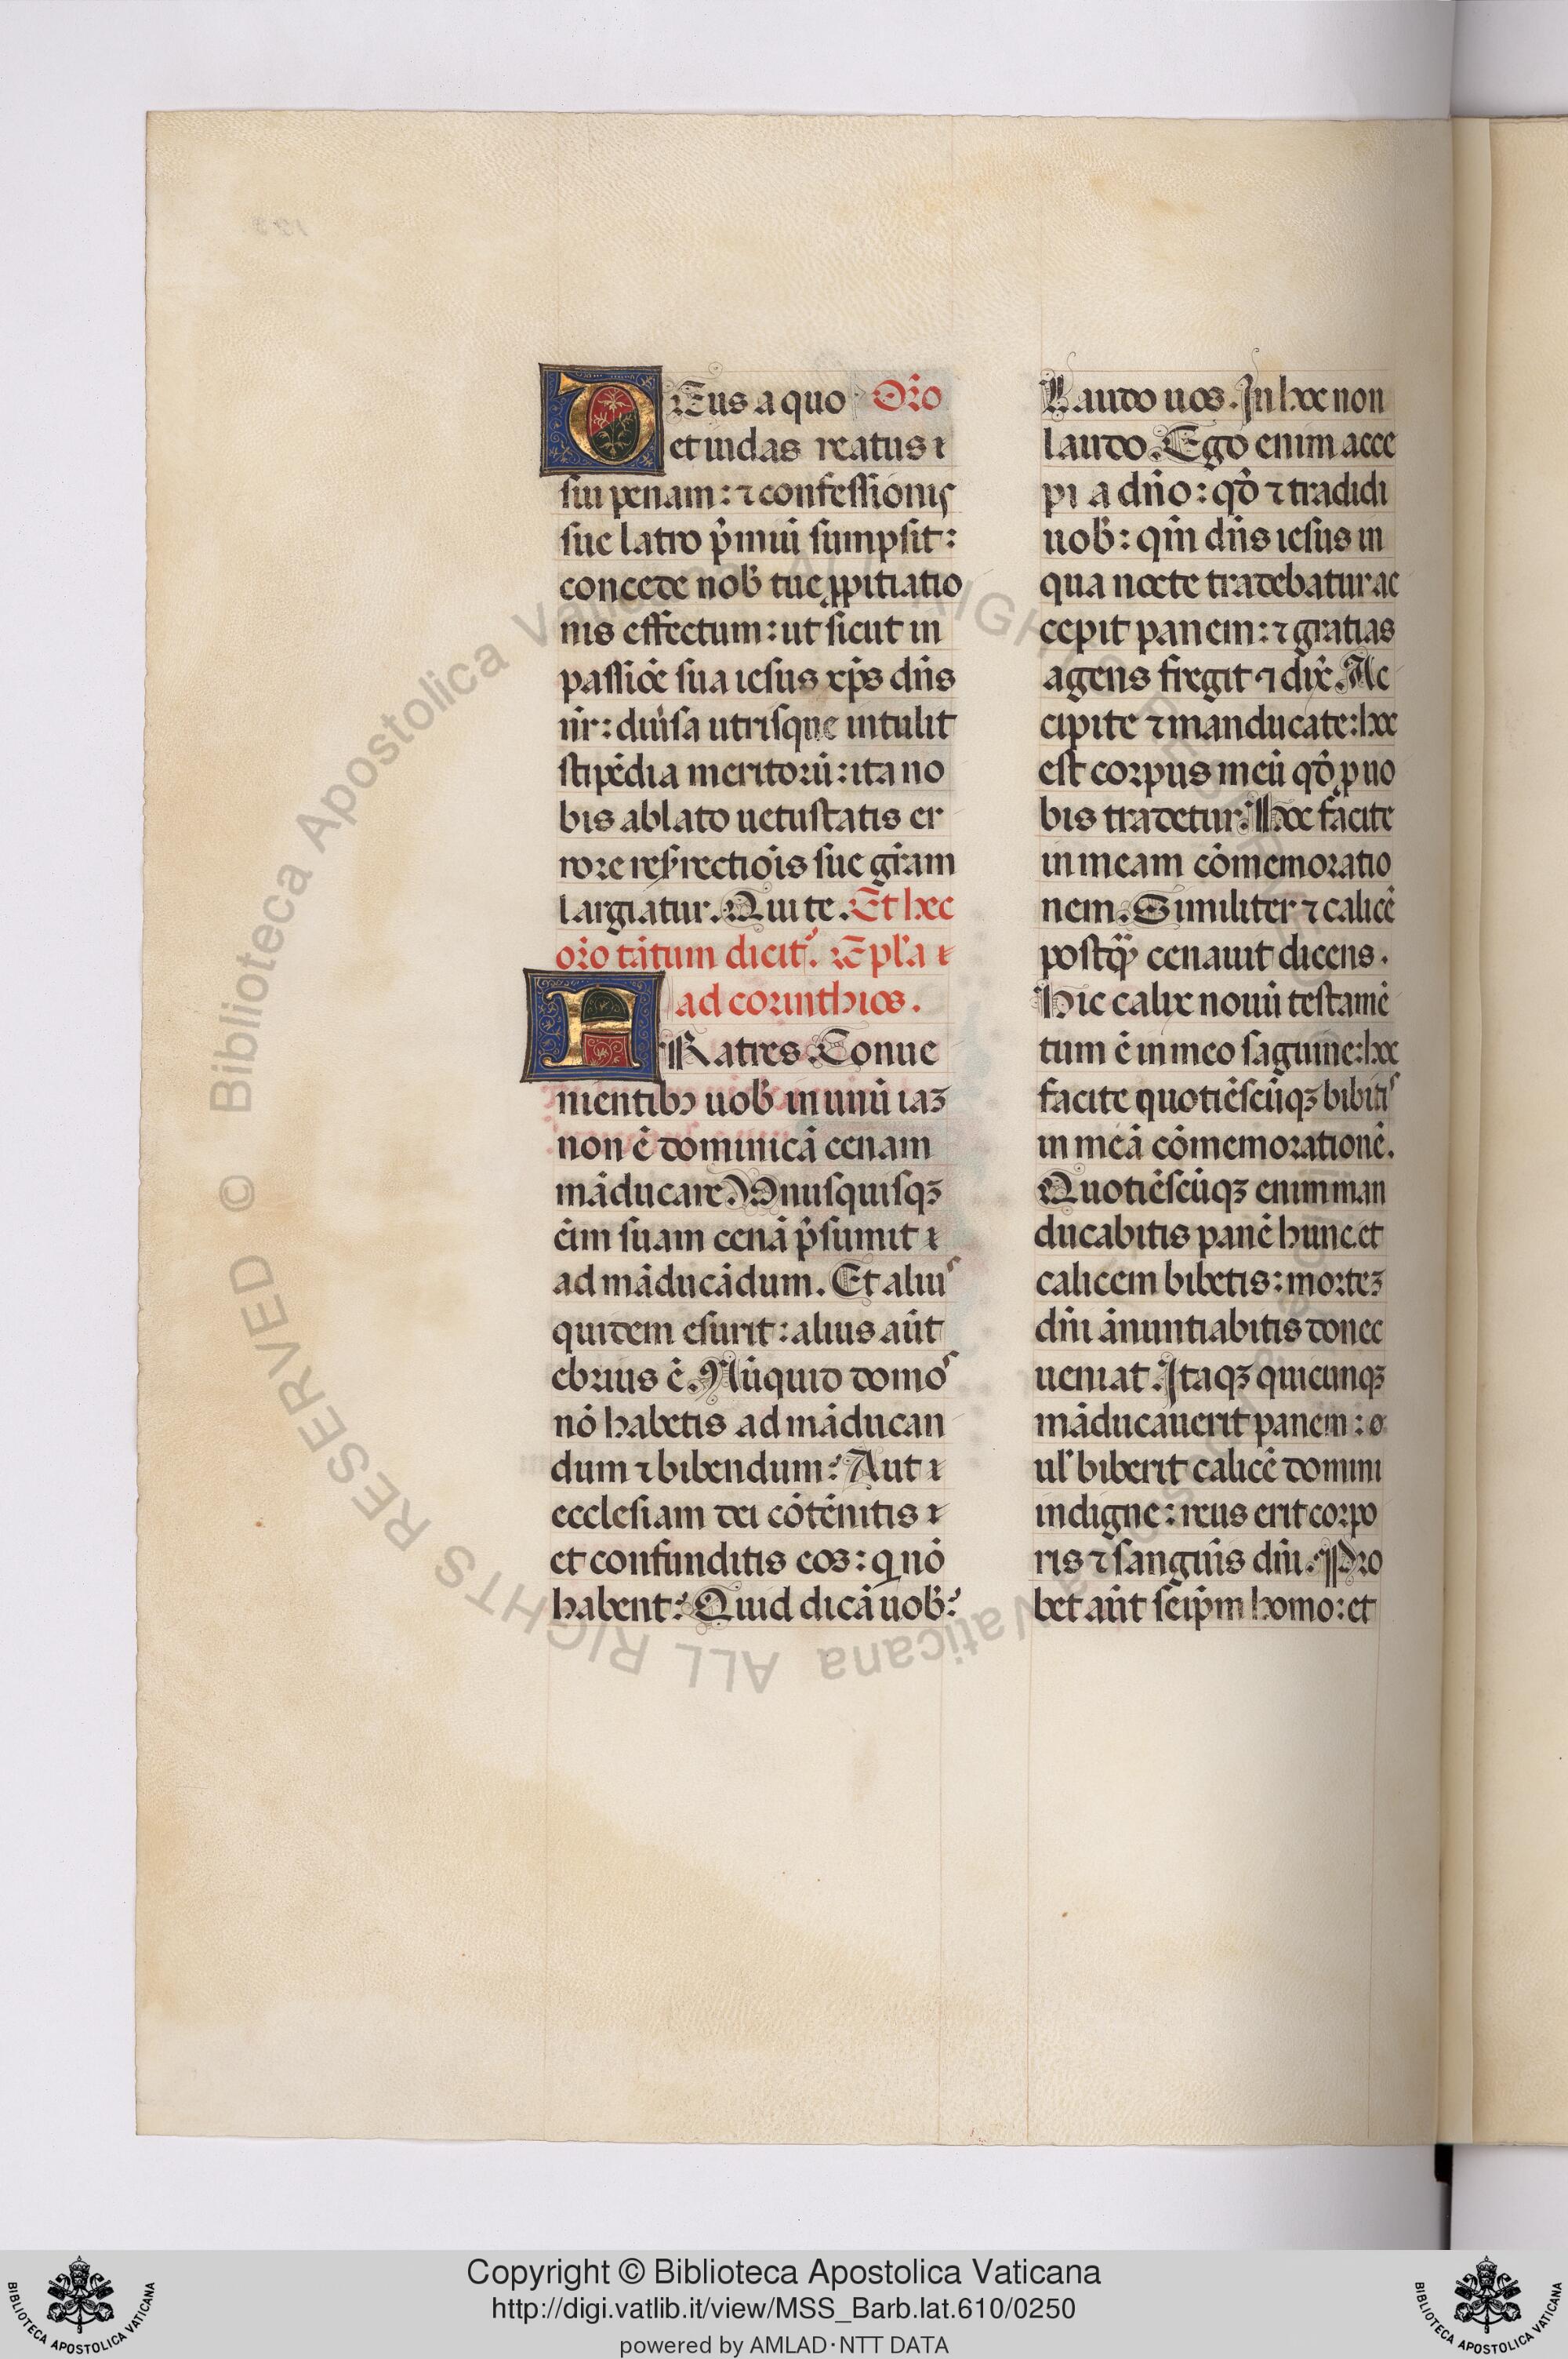 DEus a quo Oro
et iudas reatus
sui penam: ⁊ confessionis
sue latro p̄miū sumpsit:
concede nob̄ tue ꝓpitiatio
nis effectum: ut sicut in
passiōe sua iesus xp̄s dn̄s
nr̄: diūsa utrisque intulit
stipēdia meritoꝝū: ita no
bis ablato uetustatis er
rore resr̄rectiōis sue gr̄am
largiatur. Qui te. Et hec
or̄o tātum dicit᷑. Ep̄la
ad corinthios.
FRatres. Conue
nientibꝫ uob̄ in unū iaꝫ
non ē dominicā cenam
māducare. Unusquisqꝫ
ēim suam cenā p̄sumit
ad māducādum. Et alius
quidem esurit: alius aūt
ebrius ē. Nūquid domos
nō habetis ad māducan
dum ⁊ bibendum? Aut
ecclesiam dei cōtēnitis
et confunditis eos: q nō
habent? Quid dicā uob̄?
Laudo uos. In hoc non
laudo. Ego enim acce
pi a dn̄o: qd̄ ⁊ tradidi
uob̄: qm̄ dn̄s iesus in
qua nocte tradebatur ac
cepit panem: ⁊ gratias
agens fregit ⁊ dix̄. Ac
cipite ⁊ manducate: hoc
est corpus meū qd̄ ꝓ uo
bis tradetur. Hoc facite
in meam cōmemoratio
nem. Similiter ⁊ calicē
postq̄ cenauit dicens.
Hic calix nouū testamē
tum ē in meo saguine: hoc
facite quotiēscūqꝫ bibitis
in meā cōmemorationē.
Quotiēscūqꝫ enim man
ducabitis panē hunc et
calicem bibetis: morteꝫ
dn̄i ānuntiabitis donec
ueniat. Itaqꝫ quicunqꝫ
māducauerit panem:
ul̄ biberit calicē domini
indigne: reus erit corpo
ris ⁊ sanguis dn̄i. Pro
bet aūt seip̄m homo: et
© Biblioteca Apostolica Vaticana ALL RIGHTS RESERVED
Copyright © Biblioteca Apostolica Vaticana
http://digi.vatlib.it/view/MSS_Barb.lat.610/0250
powered by AMLAD·NTT DATA
BIBLIOTECA APOSTOLICA VATICANA
BIBLIOTECA APOSTOLICA VATICANA